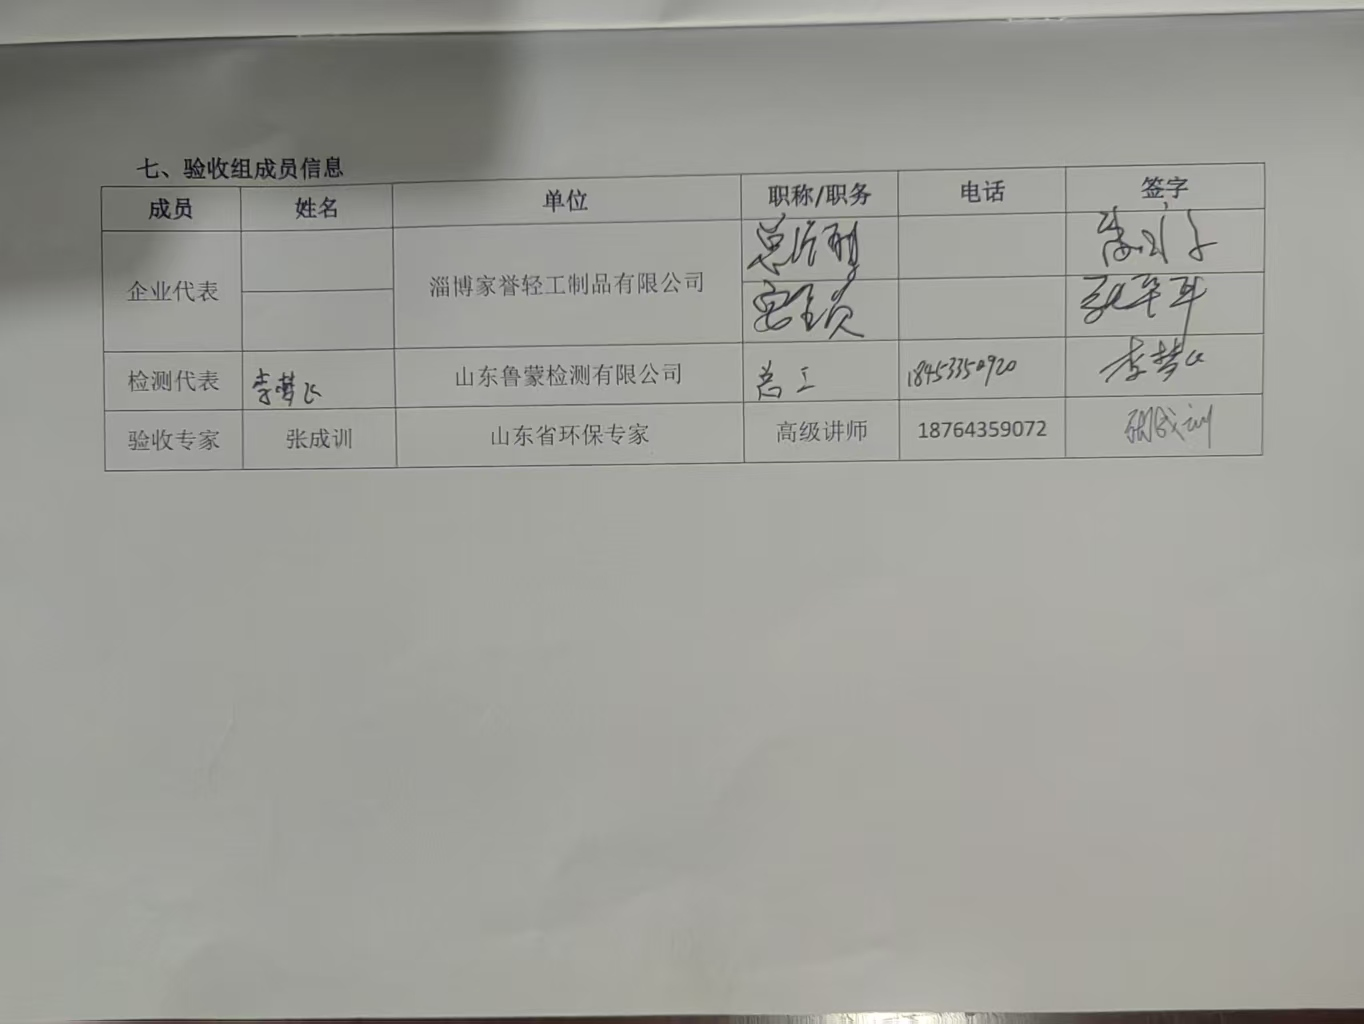 七、验收组成员信息
成员 姓名 单位 职称/职务 电话 签字
企业代表 淄博家誉轻工制品有限公司 总经理
安全员
检测代表 李梦飞 山东鲁蒙检测有限公司 总工 18453350920 李梦飞
验收专家 张成训 山东省环保专家 高级讲师 18764359072 张成训